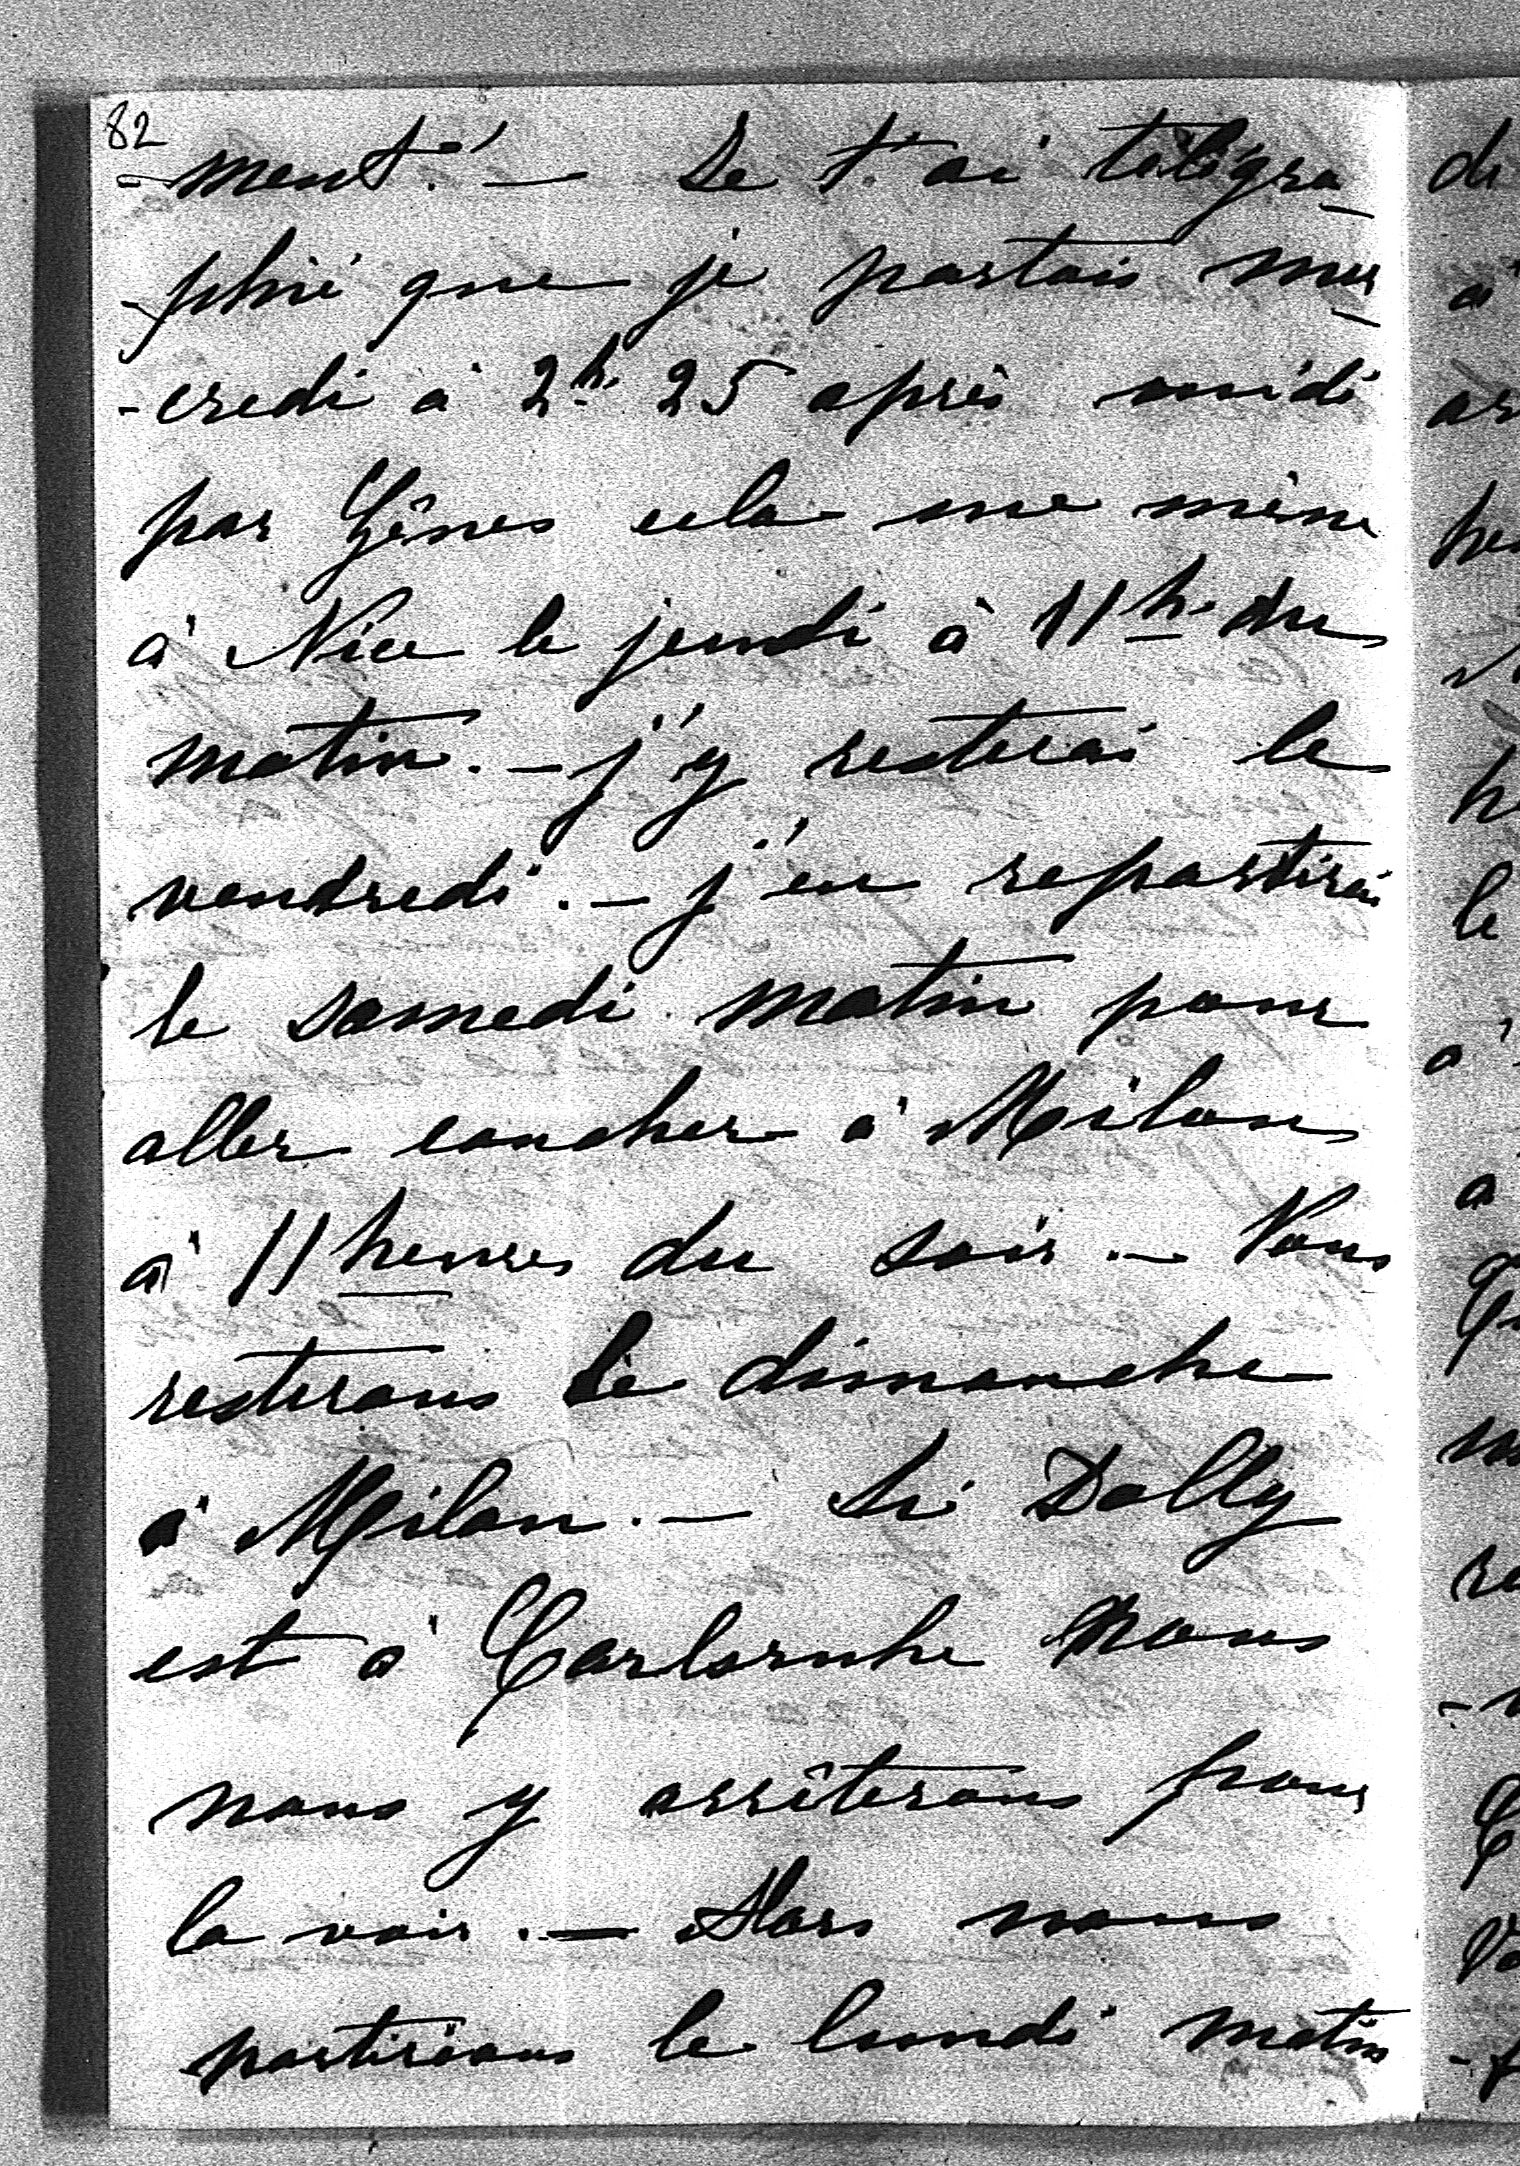 82
-ment! — Je t'ai télégra-
-phié que je partais mer-
-credi à 2h. 25 après midi
par Gênes cela me mène
à Nice le jeudi à 11h. du
matin. — j'y resterai le
vendredi. — j'en repartirai
le samedi matin pour
aller coucher à Milan
à 11 heures du soir. — Nous
resterons le dimanche
à Milan. — Si Dolly
est à Carlsruhe nous
nous y arrêterons pour
la voir. — Alors nous
partirions le lundi matin